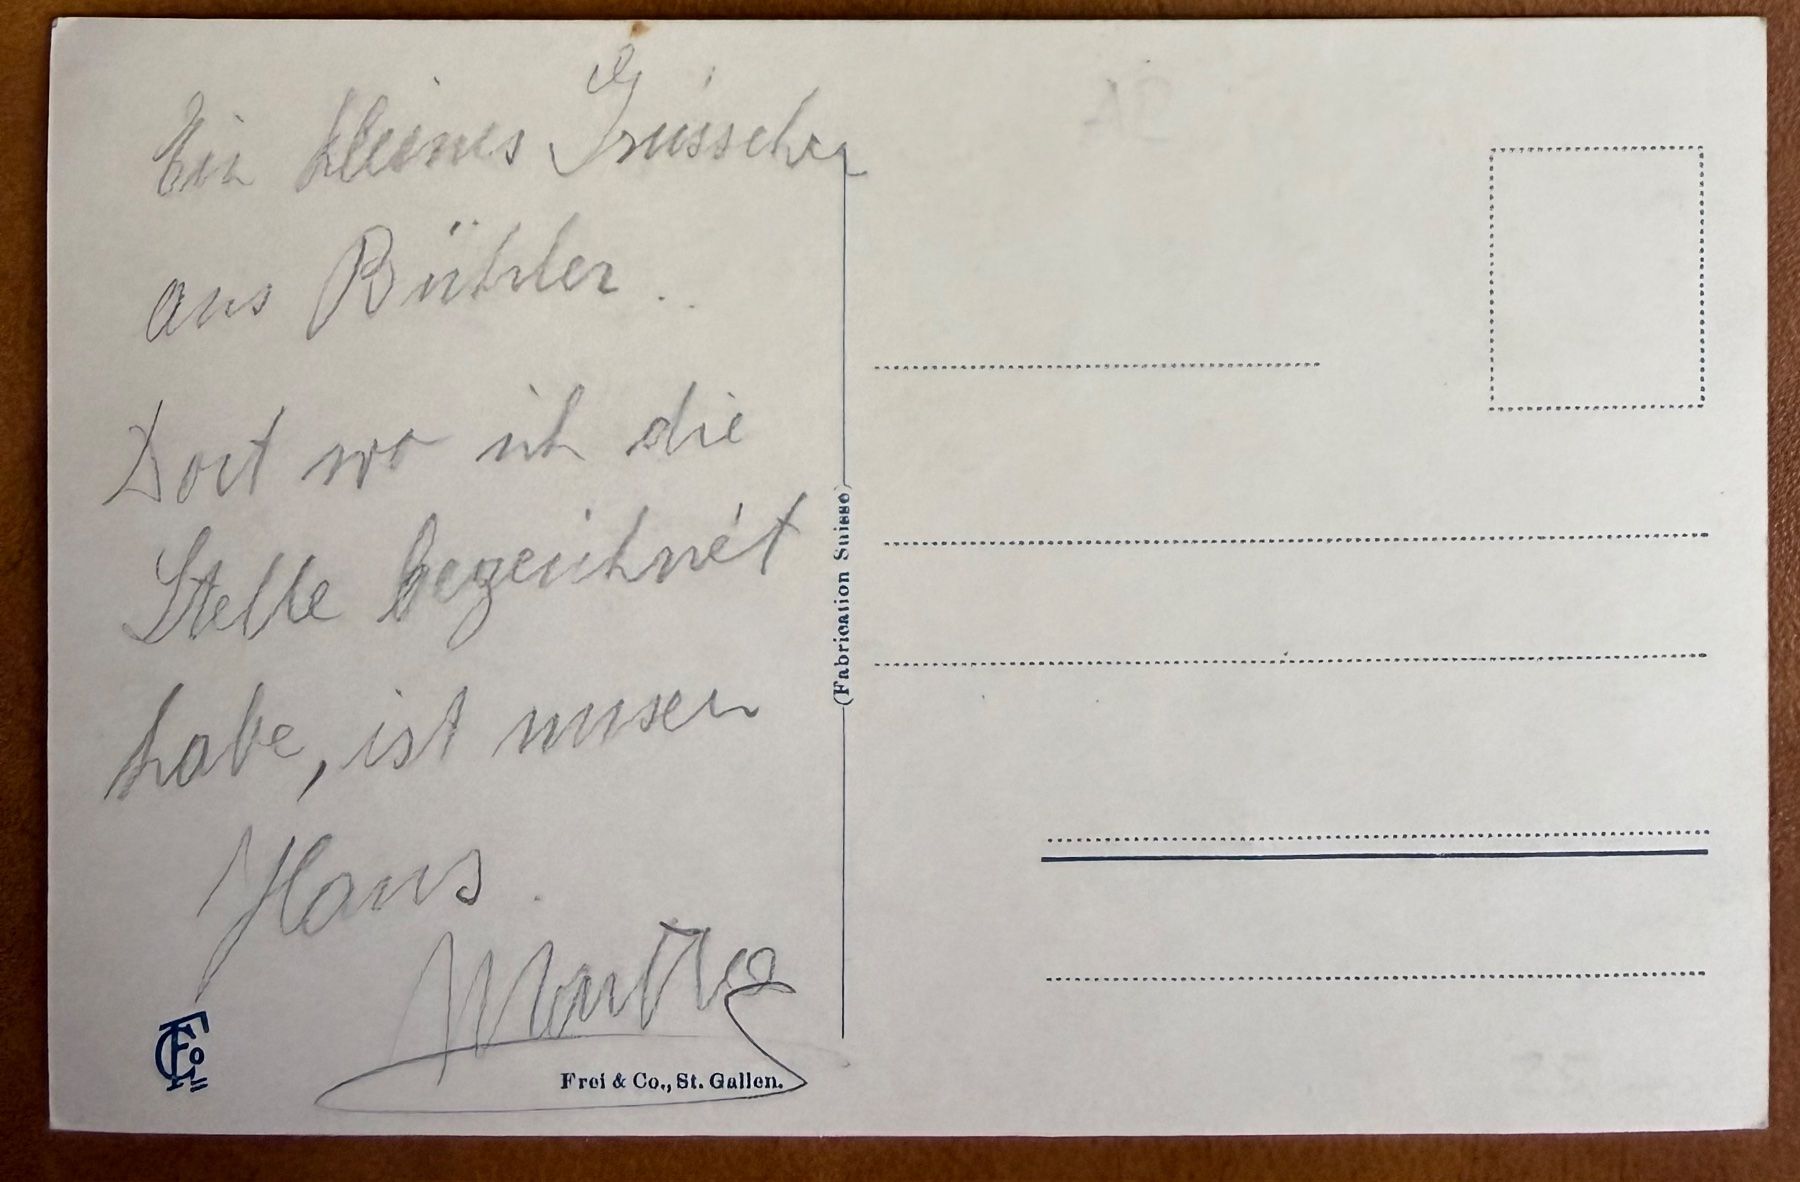 Ein kleines Grüsschen
aus Bühler.
Dort wo ich die
Stelle bezeichnet
habe, ist unser
Haus.
Martha
(Fabrication Suisse)
Frei & Co., St. Gallen.